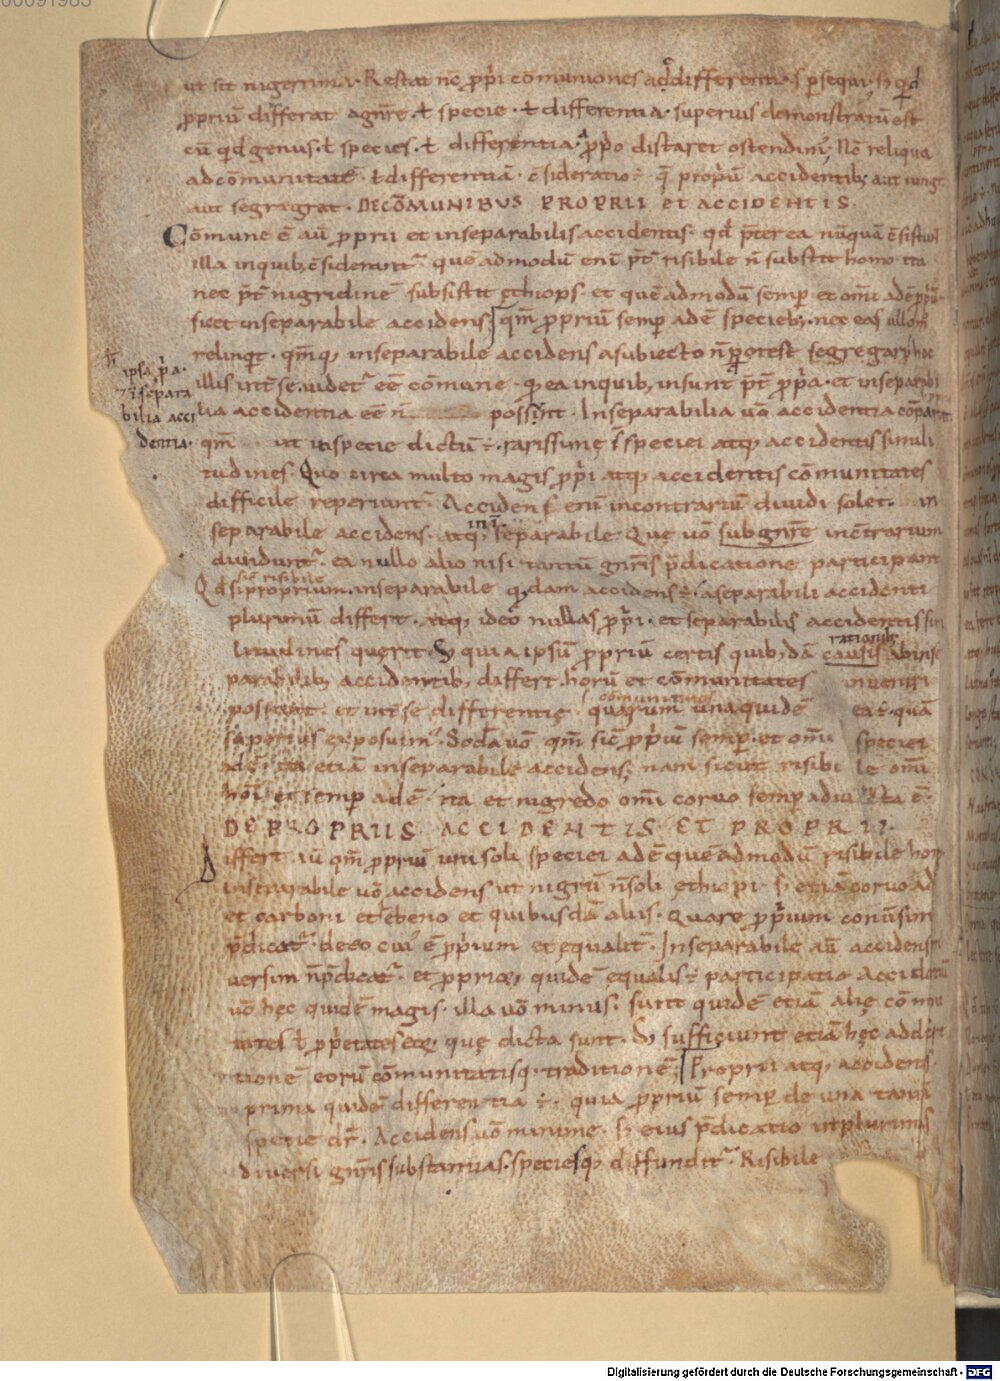 00091983
ut sit nigerrima. Restat nc̄ ꝓp̄i cōmuniones ad differentias ꝑsequi. s; qd
ꝓpriū differat a gn̄re. ł specie. ł differentia. superius demonstratū est
cū qd genus. ł species. ł differentia. a ꝓp̄o distaret ostendim᷒. Nc̄ reliqua
ad cōmunitatē. ł differentiā. c̄sideratio ÷. q̄ propriū accidentib; aut iungit
aut segregat. DE CŌMUNIBUS PROPRII ET ACCIDENTIS.
Cōmune ē aū ꝓprii et inseparabilis accidentis. qd p̄ter ea nūquā c̄sistunt
illa in quib; c̄siderant᷑. quē admodū eni p̄t risibile n̄ subsistit homo. ita
nec p̄t nigridinē subsistit ęthiops. et quē admodū semꝑ et omi adē ꝓp̄iū.
sicut inseparabile accidens. qm̄ ꝓpriū semꝑ adē specieb;. nec eas ullo
relinqt. qm̄q; inseparabile accidens a subiecto n̄ potest segregari. hoc
illis int̄ se. uidet᷑ eē cōmune. q ea in quib; insunt p̄t ꝓp̄a. et inseparabi
lia accidentia eē n̄ possint. Inseparabilia uō accidentia
ħ
ipsa ꝓ̄a.
inseparabilia acci
dentia.
qm̄ ut in specie dictū ÷. rarissimę speciei atq; accidentis simili
tudines. Quo circa multo magis ꝓp̄i atq; accidentis cōmunitates
difficile reperiunt᷑. Accidens enī in contrariū diuidi solet. in
separabile accidens. atq; inseparabile. Quę uō sub gn̄re in c̄trarium
diuidunt᷑. ea nullo alio nisi tantū gn̄ris p̄dicatione participant
sic risibile
Qd si proprium. inseparabile qddam accidens ÷. a separabili accidenti
plurimū differt. atq; ideo nullas ꝓp̄i. et separabilis accidentis sim
rationib;
ilitudines querit. S; quia ipsū ꝓpriū certis quib;dā causis ab inse
parabilib; accidentib; differt. horū et cōmunitates inueniri
cōmunitates
possunt. et int̄ se differentię. quarum una quidē ea ÷. quā
superius exposuim᷒. Scda uō qm̄ sic̄ ꝓp̄iū semꝑ. et omi speciei
adē. ita etiā inseparabile accidens, nam sicut risibi le omi
homi et semꝑ adē. ita et nigredo omi coruo semꝑ adiu cta ē.
DE PROPRIIS ACCIDENTIS ET PROPRII.
Differt aū qm̄ ꝓpriū uni soli speciei adē quē admodū risibile
inseparabile uō accidens ut nigrū n̄ soli ęthiopi. s; etiā coruo ad
et carboni et ebeno et quibusdā aliis. Quare ꝓp̄ium conuersim
p̄dicat᷑. de eo cui᷒ ē ꝓp̄ium et equalit̄. Inseparabile aū accidens
uersim n̄ p̄dicat᷑. et ꝓprioꝝ quidē equalis ÷ participatio. Accidentiū
uō hęc quidē magis. illa uō minus. sunt quidē etiā alię cōmu
nitates ł ꝓp̄etates eoꝝ quę dicta sunt. S; sufficiunt etiā hęc ad
tionē eorū cōmunitatisq; traditionē. Proprii atq; accidens
prima quidē differentia ÷. quia ꝓpriū semꝑ de una tantū
specie dr̄. Accidens uō minime. s; eius p̄dicatio in plurimas
diuersi gn̄ris substantias. speciesq; diffundit᷑. Risibile
Digitalisierung gefördert durch die Deutsche Forschungsgemeinschaft - DFG